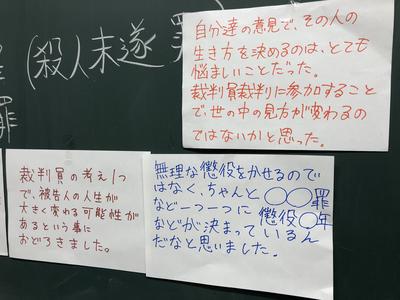 (殺)人未遂罪
罪
自分達の意見で、その人の
生き方を決めるのは、とても
悩ましいことだった。
裁判員裁判に参加すること
で、世の中の見方が変わるの
ではないかと思った。
裁判員の考え1つ
で、被告人の人生が
大きく変わる可能性が
あるという事に
おどろきました。
無理な懲役をかせるので
はなく、ちゃんと○○罪
など一つ一つに懲役○年
などが決まっているん
だなと思いました。